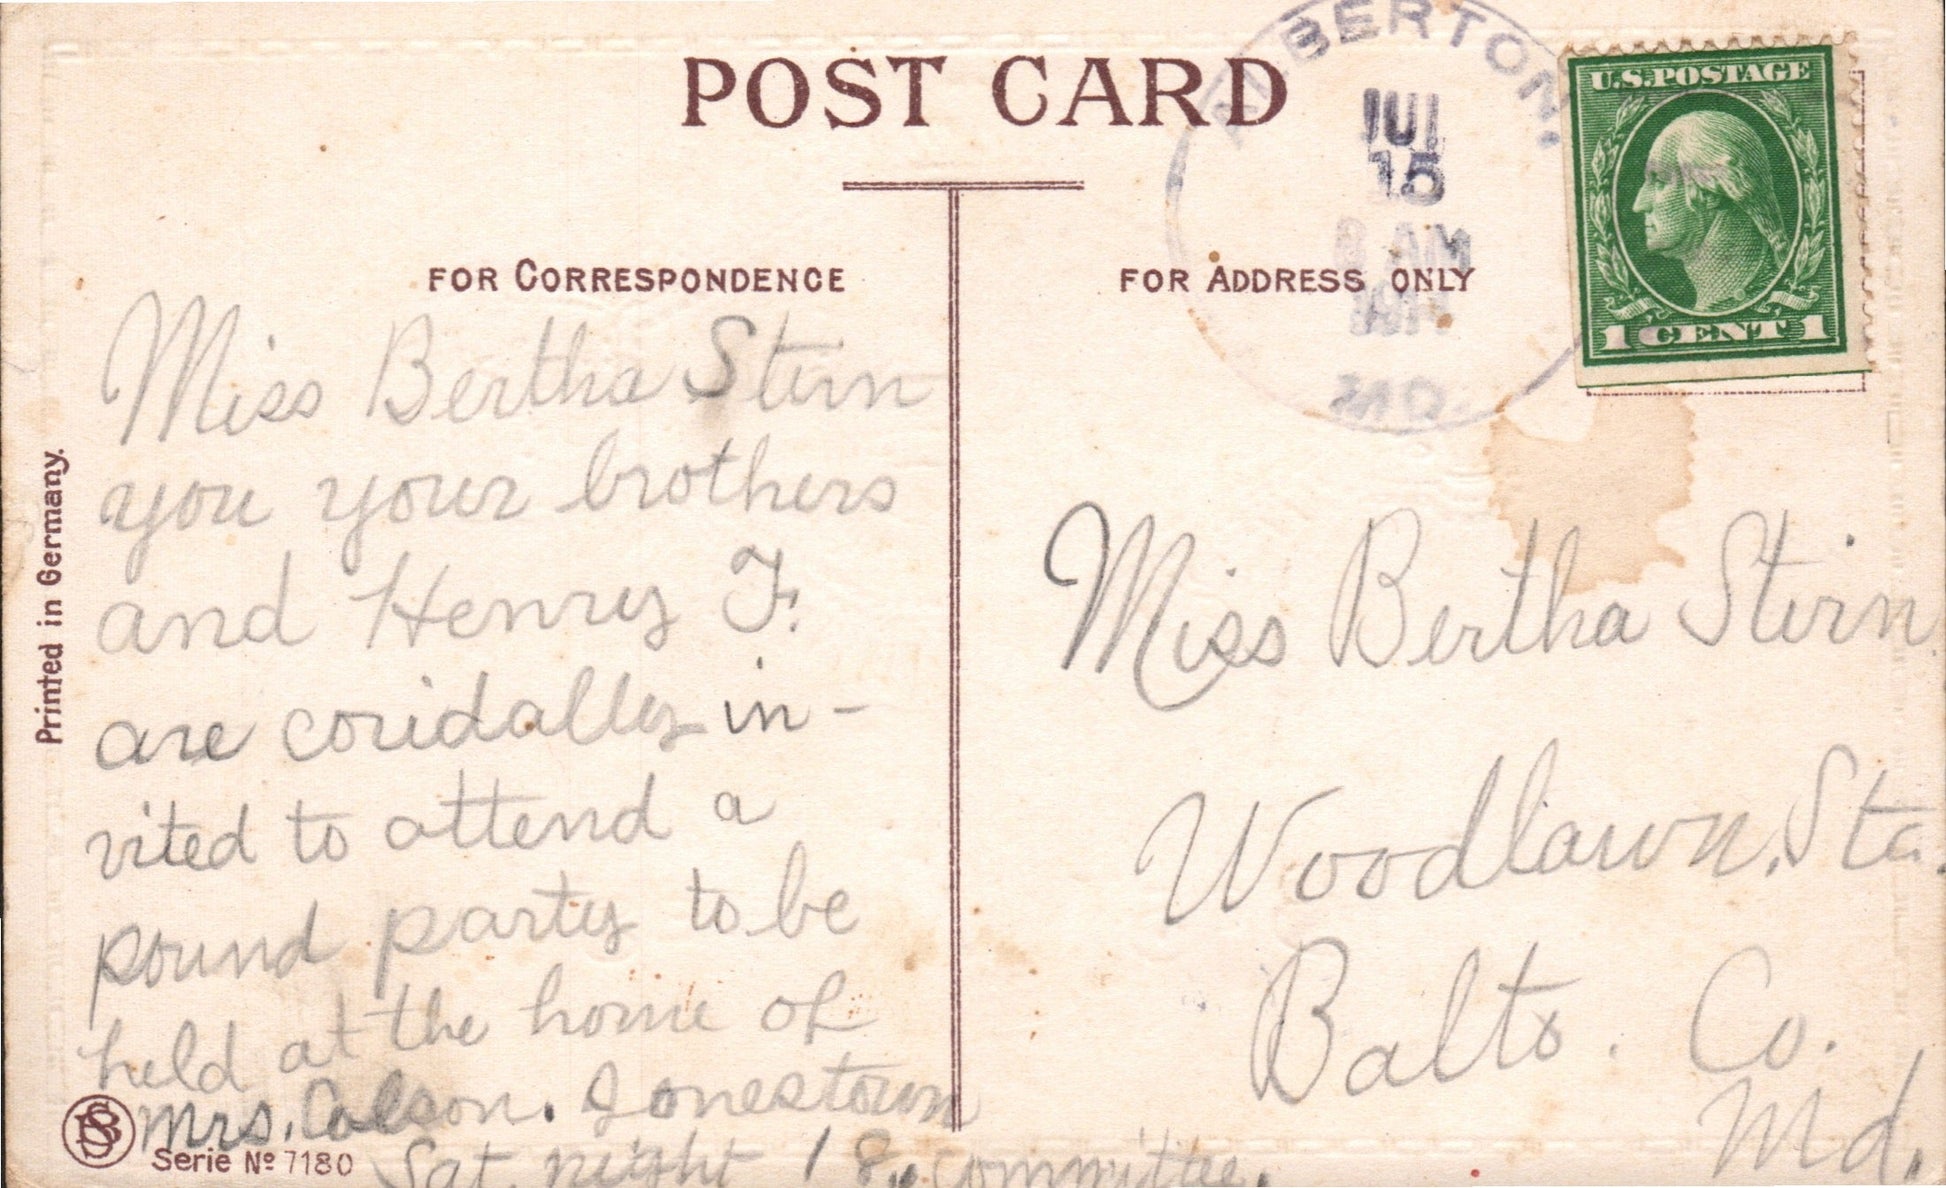 POST CARD
FOR CORRESPONDENCE
Miss Bertha Stern
you your brothers
and Henry F.
are coridally in-
vited to attend a
pound party to be
held at the home of
Mrs. Colson. Jonestown
Sat. night 18. Committee.
Printed in Germany.
Serie No 7180
FOR ADDRESS ONLY
ALBERTON.
JUL
15
8 AM
MD.
U.S.POSTAGE
1 CENT 1
Miss Bertha Stern
Woodlawn, Sta.
Balto. Co.
Md.